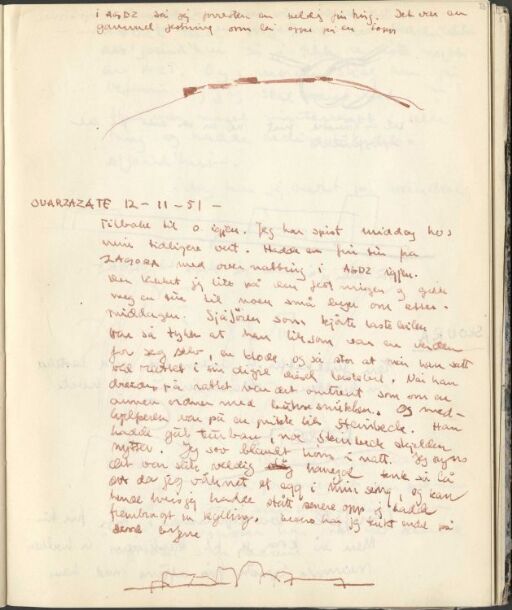 i AGDZ så jeg forresten en veldig fin ting. Det var en
gammel festning som lå oppe på en topp
OUARZAZATE 12 - 11 - 51 -
Tilbake til O. igjen. Jeg har spist middag hos
min tidligere vert. Hadde en fin tur fra
ZAGORA med overnatting i AGDZ igjen.
jeg litt på den festningen og gikk
meg en tur til noen små byer om etter-
middagen. Sjåføren som kjørte lastebilen
var så tykk at han liksom var en verden
for seg selv, en klode. Og så stor at
i sin digre lastebil. Når han
dreide på rattet var det omtrent som om en
annen ordner med . Og med-
hjelperen var på en prikk lik Steinbeck. Han
hadde gul turban, noe Steinbeck skjelden
nytter. Jeg sov blandt høns i natt. Jeg synes
det var sånn veldig hønegal
da jeg våknet et egg i min seng, og kan
hende hvis jeg hadde stått senere opp jeg hadde
frembragt en kylling. har jeg tenkt
denne